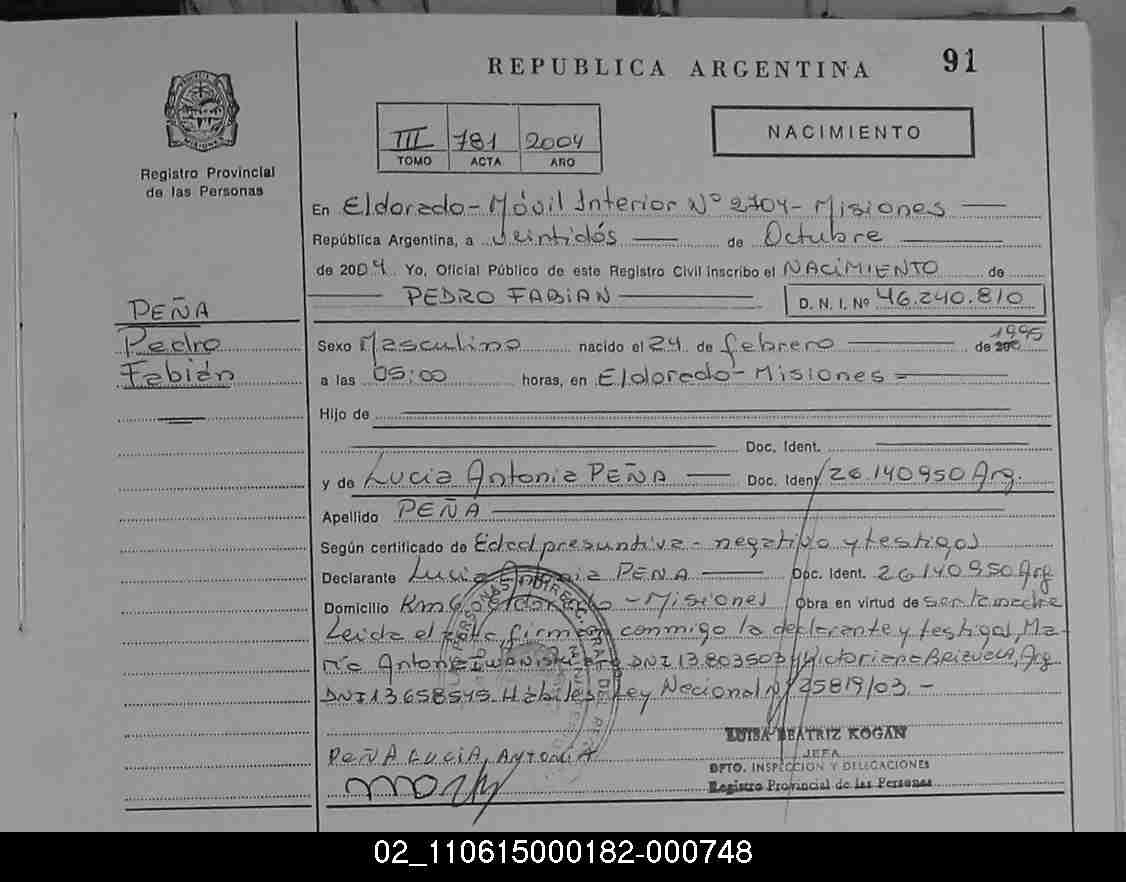 REPUBLICA ARGENTINA
91
PROVINCIA DE
MISIONES
Registro Provincial
de las Personas
III 781 2004
TOMO ACTA AÑO
NACIMIENTO
En Eldorado - Móvil Interior Nº 2704 - Misiones
República Argentina, a veintidós de Octubre
de 2004 Yo, Oficial Público de este Registro Civil inscribo el NACIMIENTO de
PEDRO FABIAN D. N. I. Nº 46.240.810
PEÑA
Pedro
Fabián
Sexo Masculino nacido el 24 de febrero de 1995
a las 05:00 horas, en Eldorado - Misiones
Hijo de
Doc. Ident.
y de Lucia Antonia PEÑA Doc. Ident. 26.140950 Arg.
Apellido PEÑA
Según certificado de Edad presuntiva - negativo y testigos
Declarante Lucia Antonia PEÑA Doc. Ident. 26140950 Arg
Domicilio Km Eldorado - Misiones Obra en virtud de ser la madre
Leida el acta firman conmigo la declarante y testigos, Ma-
ría Antonia Arg DNI 13.803503 y Victoriana BRIZUELA, Arg
DNI 13658545. Hábiles Ley Nacional nº 25819/03. -
PEÑA LUCIA, ANTONIA
LUISA BEATRIZ KOGAN
JEFA
DPTO. INSPECCION Y DELEGACIONES
Registro Provincial de las Personas
02_110615000182-000748